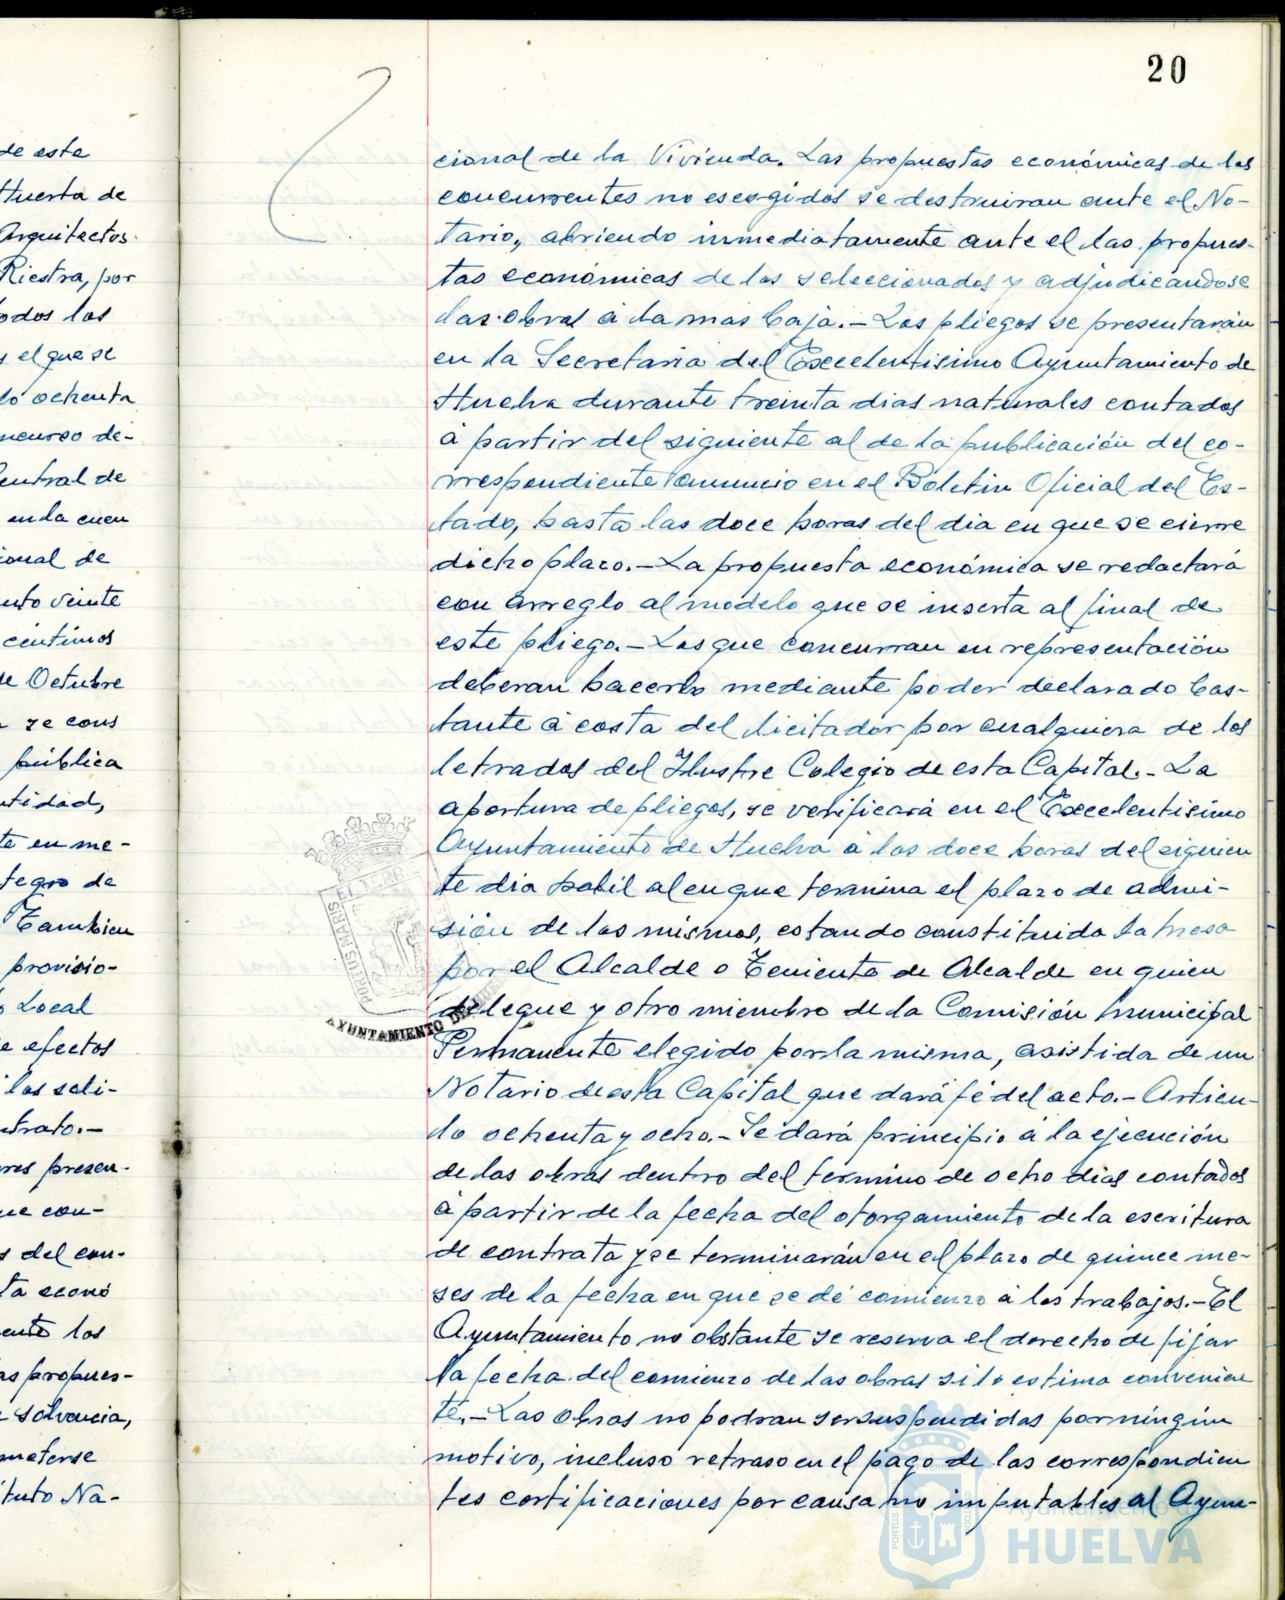 20
de este
Huerta de
Arquitectos.
Riestra, por
odos los
y el que se
lo ochenta
ncurso de-
Central de
en la cuen
ional de
ento veinte
centimos
de Octubre
se cons
pública
ntidad,
te en me-
tegro de
Tambien
provisio-
Local
e efectos
los soli-
ntrato.-
res presen-
ue con-
s del con-
ta econó
ente los
as propues-
solvencia,
meterse
tituto Na-
cional de la Vivienda. Las propuestas económicas de los
concurrentes no escogidos se destruiran ante el No-
tario, abriendo inmediatamente ante el las propues-
tas económicas de los seleccionados y adjudicandose
las obras á la mas baja.- Los pliegos se presentarán
en la Secretaria del Excelentisimo Ayuntamiento de
Huelva durante treinta dias naturales contados
á partir del siguiente al de la publicación del co-
rrespondiente anuncio en el Boletin Oficial del Es-
tado, hasta las doce horas del dia en que se cierre
dicho plazo.- La propuesta económica se redactará
con arreglo al modelo que se inserta al final de
este pliego.- Los que concurran en representación
deberan hacerlo mediante poder declarado bas-
tante á costa del licitador por cualquiera de los
letrados del Ilustre Colegio de esta Capital.- La
apertura de pliegos, se verificará en el Excelentisimo
Ayuntamiento de Huelva á las doce horas del siguien
te dia habil al en que termina el plazo de admi-
sión de los mismos, estando constituida la mesa
por el Alcalde o Teniente de Alcalde en quien
delegue y otro miembro de la Comisión Municipal
Permanente elegido por la misma, asistida de un
Notario de esta Capital que dará fé del acto.- Articu-
lo ochenta y ocho.- Se dará principio á la ejecución
de las obras dentro del termino de ocho dias contados
á partir de la fecha del otorgamiento de la escritura
de contrata y se terminarán en el plazo de quince me-
ses de la fecha en que se dé comienzo á los trabajos.- El
Ayuntamiento no obstante se reserva el derecho de fijar
la fecha del comienzo de las obras si lo estima convenien
te.- Las obras no podran ser suspendidas por ningún
motivo, incluso retraso en el pago de las correspondien
tes certificaciones por causa no imputables al Ayun-
PORTUS MARIS ET
AYUNTAMIENTO DE
Ayuntamiento de
HUELVA